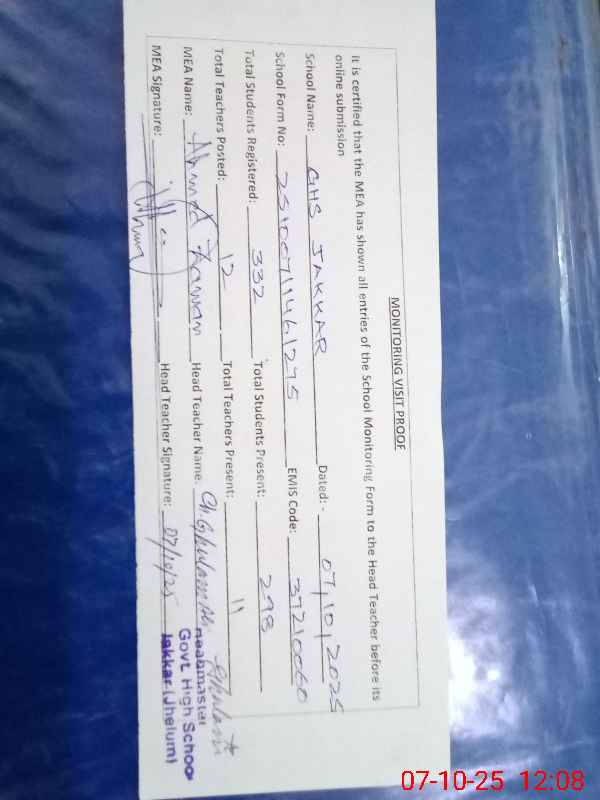 MONITORING VISIT PROOF
It is certified that the MEA has shown all entries of the School Monitoring Form to the Head Teacher before its
online submission
School Name: GHS JAKKAR Dated: - 07/10/2025
School Form No: EMIS Code: 37210060
Total Students Registered: 332 Total Students Present: 298
Total Teachers Posted: 12 Total Teachers Present: 11
MEA Name: Ahmed Head Teacher Name: Ch. Ghulam
MEA Signature: Head Teacher Signature: 07/10/25
Headmaster
Govt. High School
Jakkar (Jhelum)
07-10-25 12:08